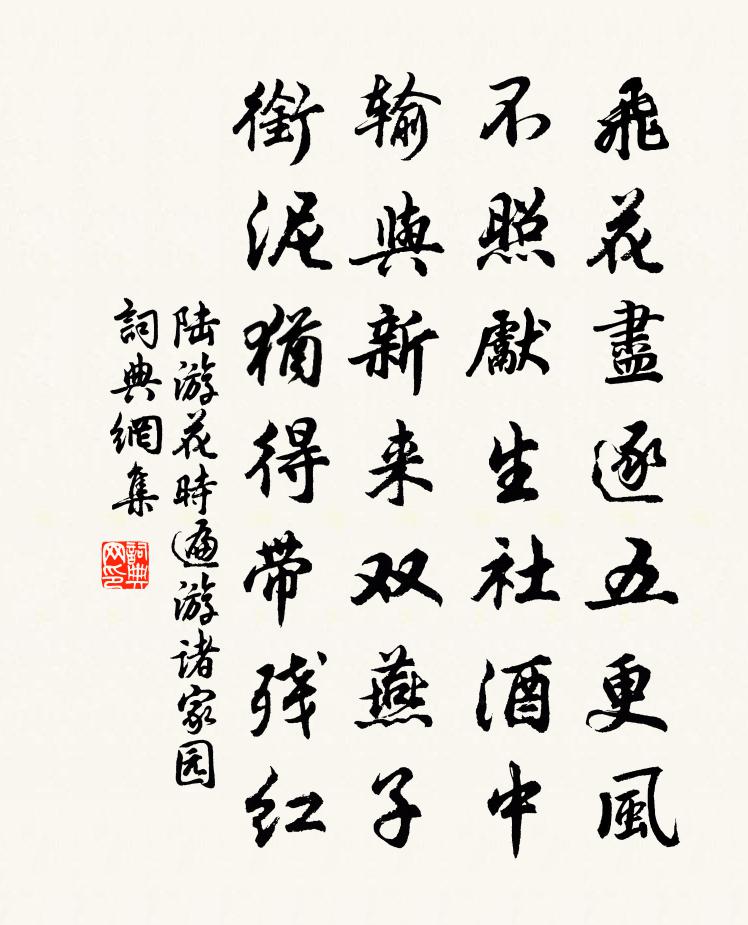 飛花盡逐五更風
不照獻生社酒中
输與新来双燕子
銜泥猶得带残红
陆游花時遍游诸家园
詞典網集
詞典网印